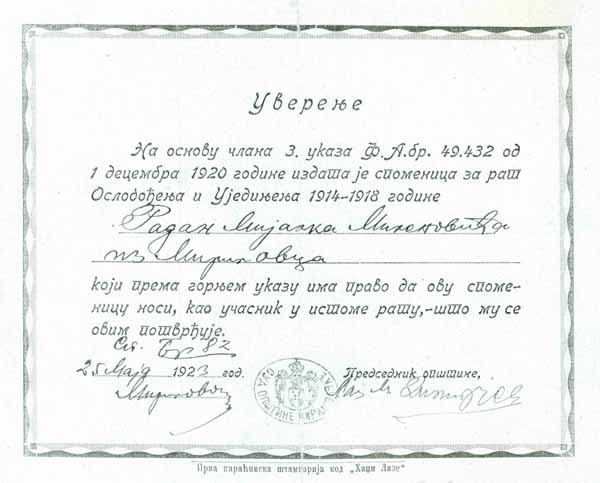 Уверење
На основу члана 3. указа Ф. А. бр. 49.432 од
1 децембра 1920 године издата је споменица за рат
Ослобођења и Уједињења 1914-1918 године
Радан Мијалка Миленовића
из Мириловца
који према горњем указу има право да ову споме-
ницу носи, као учасник у истоме рату,-што му се
овим потврђује.
Бр 82
25 Маја 1923 год.
Председник општине,
Мириловац
Прва параћинска штампарија код „Хаџи Лазе“